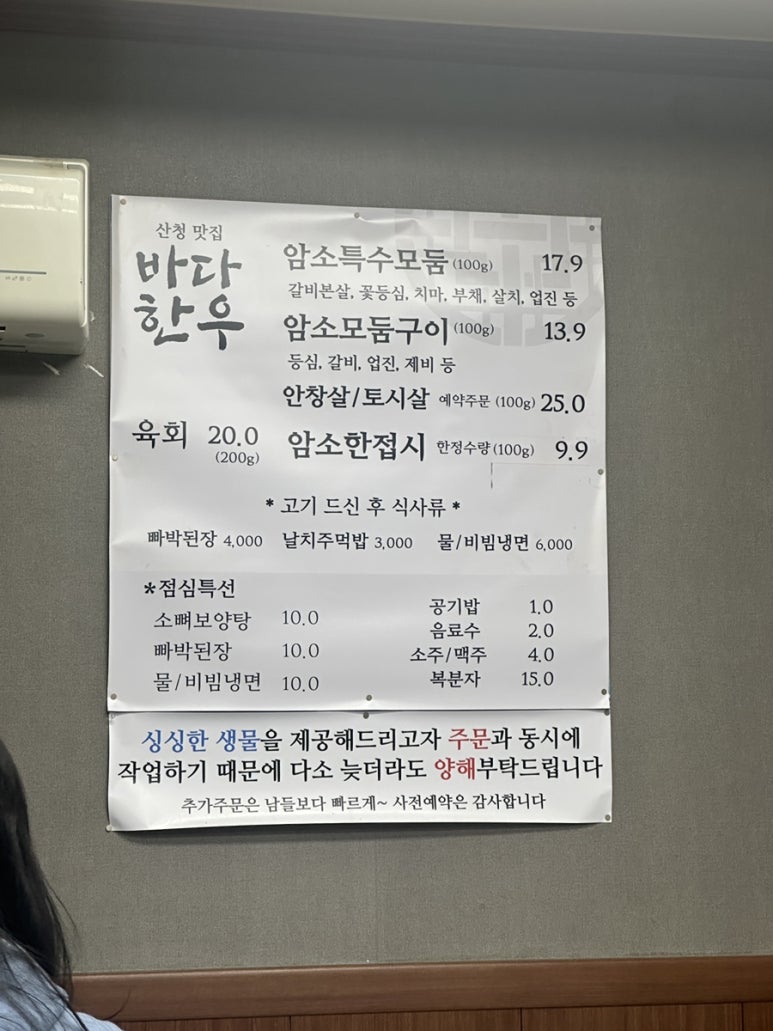 산청 맛집
바다
한우
암소특수모둠 (100g) 17.9
갈비본살, 꽃등심, 치마, 부채, 살치, 업진 등
암소모둠구이 (100g) 13.9
등심, 갈비, 업진, 제비 등
안창살/토시살 예약주문 (100g) 25.0
육회 20.0
(200g)
암소한접시 한정수량(100g) 9.9
* 고기 드신 후 식사류 *
빠박된장 4,000 날치주먹밥 3,000 물/비빔냉면 6,000
*점심특선
소뼈보양탕 10.0
빠박된장 10.0
물/비빔냉면 10.0
공기밥 1.0
음료수 2.0
소주/맥주 4.0
복분자 15.0
싱싱한 생물을 제공해드리고자 주문과 동시에
작업하기 때문에 다소 늦더라도 양해부탁드립니다
추가주문은 남들보다 빠르게~ 사전예약은 감사합니다